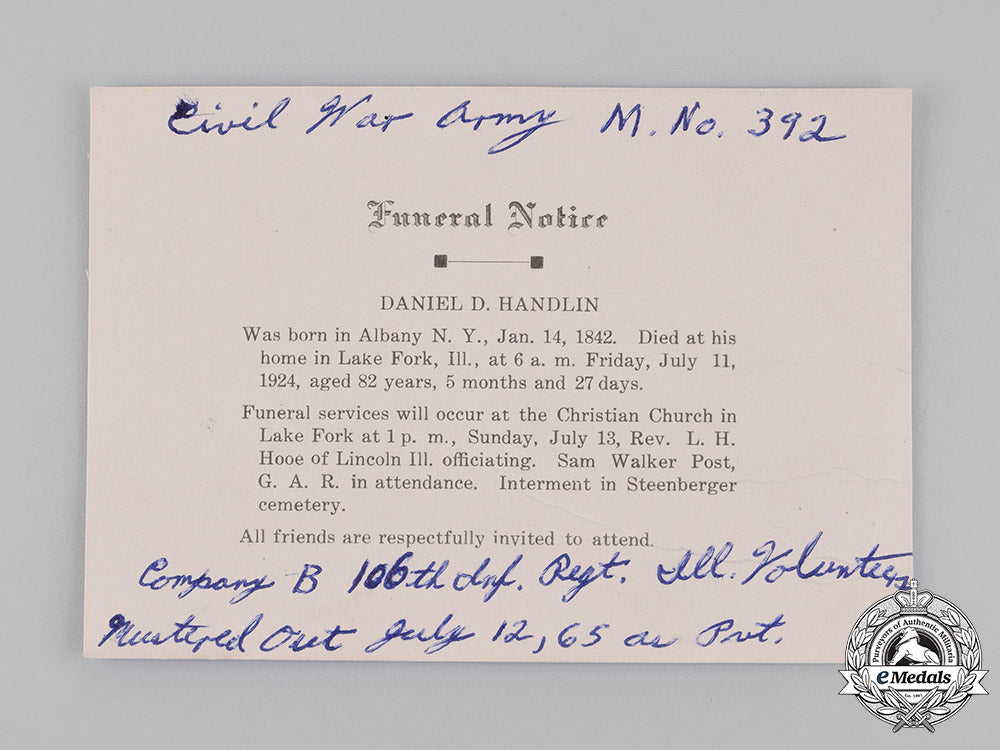 Civil War Army M. No. 392
Funeral Notice
DANIEL D. HANDLIN
Was born in Albany N. Y., Jan. 14, 1842. Died at his
home in Lake Fork, Ill., at 6 a. m. Friday, July 11,
1924, aged 82 years, 5 months and 27 days.
Funeral services will occur at the Christian Church in
Lake Fork at 1 p. m., Sunday, July 13, Rev. L. H.
Hooe of Lincoln Ill. officiating. Sam Walker Post,
G. A. R. in attendance. Interment in Steenberger
cemetery.
All friends are respectfully invited to attend.
Company B 106th Inf. Regt. Ill. Volunteers
Mustered Out July 12, 65 as Pvt.
Purveyors of Authentic Militaria
eMedals